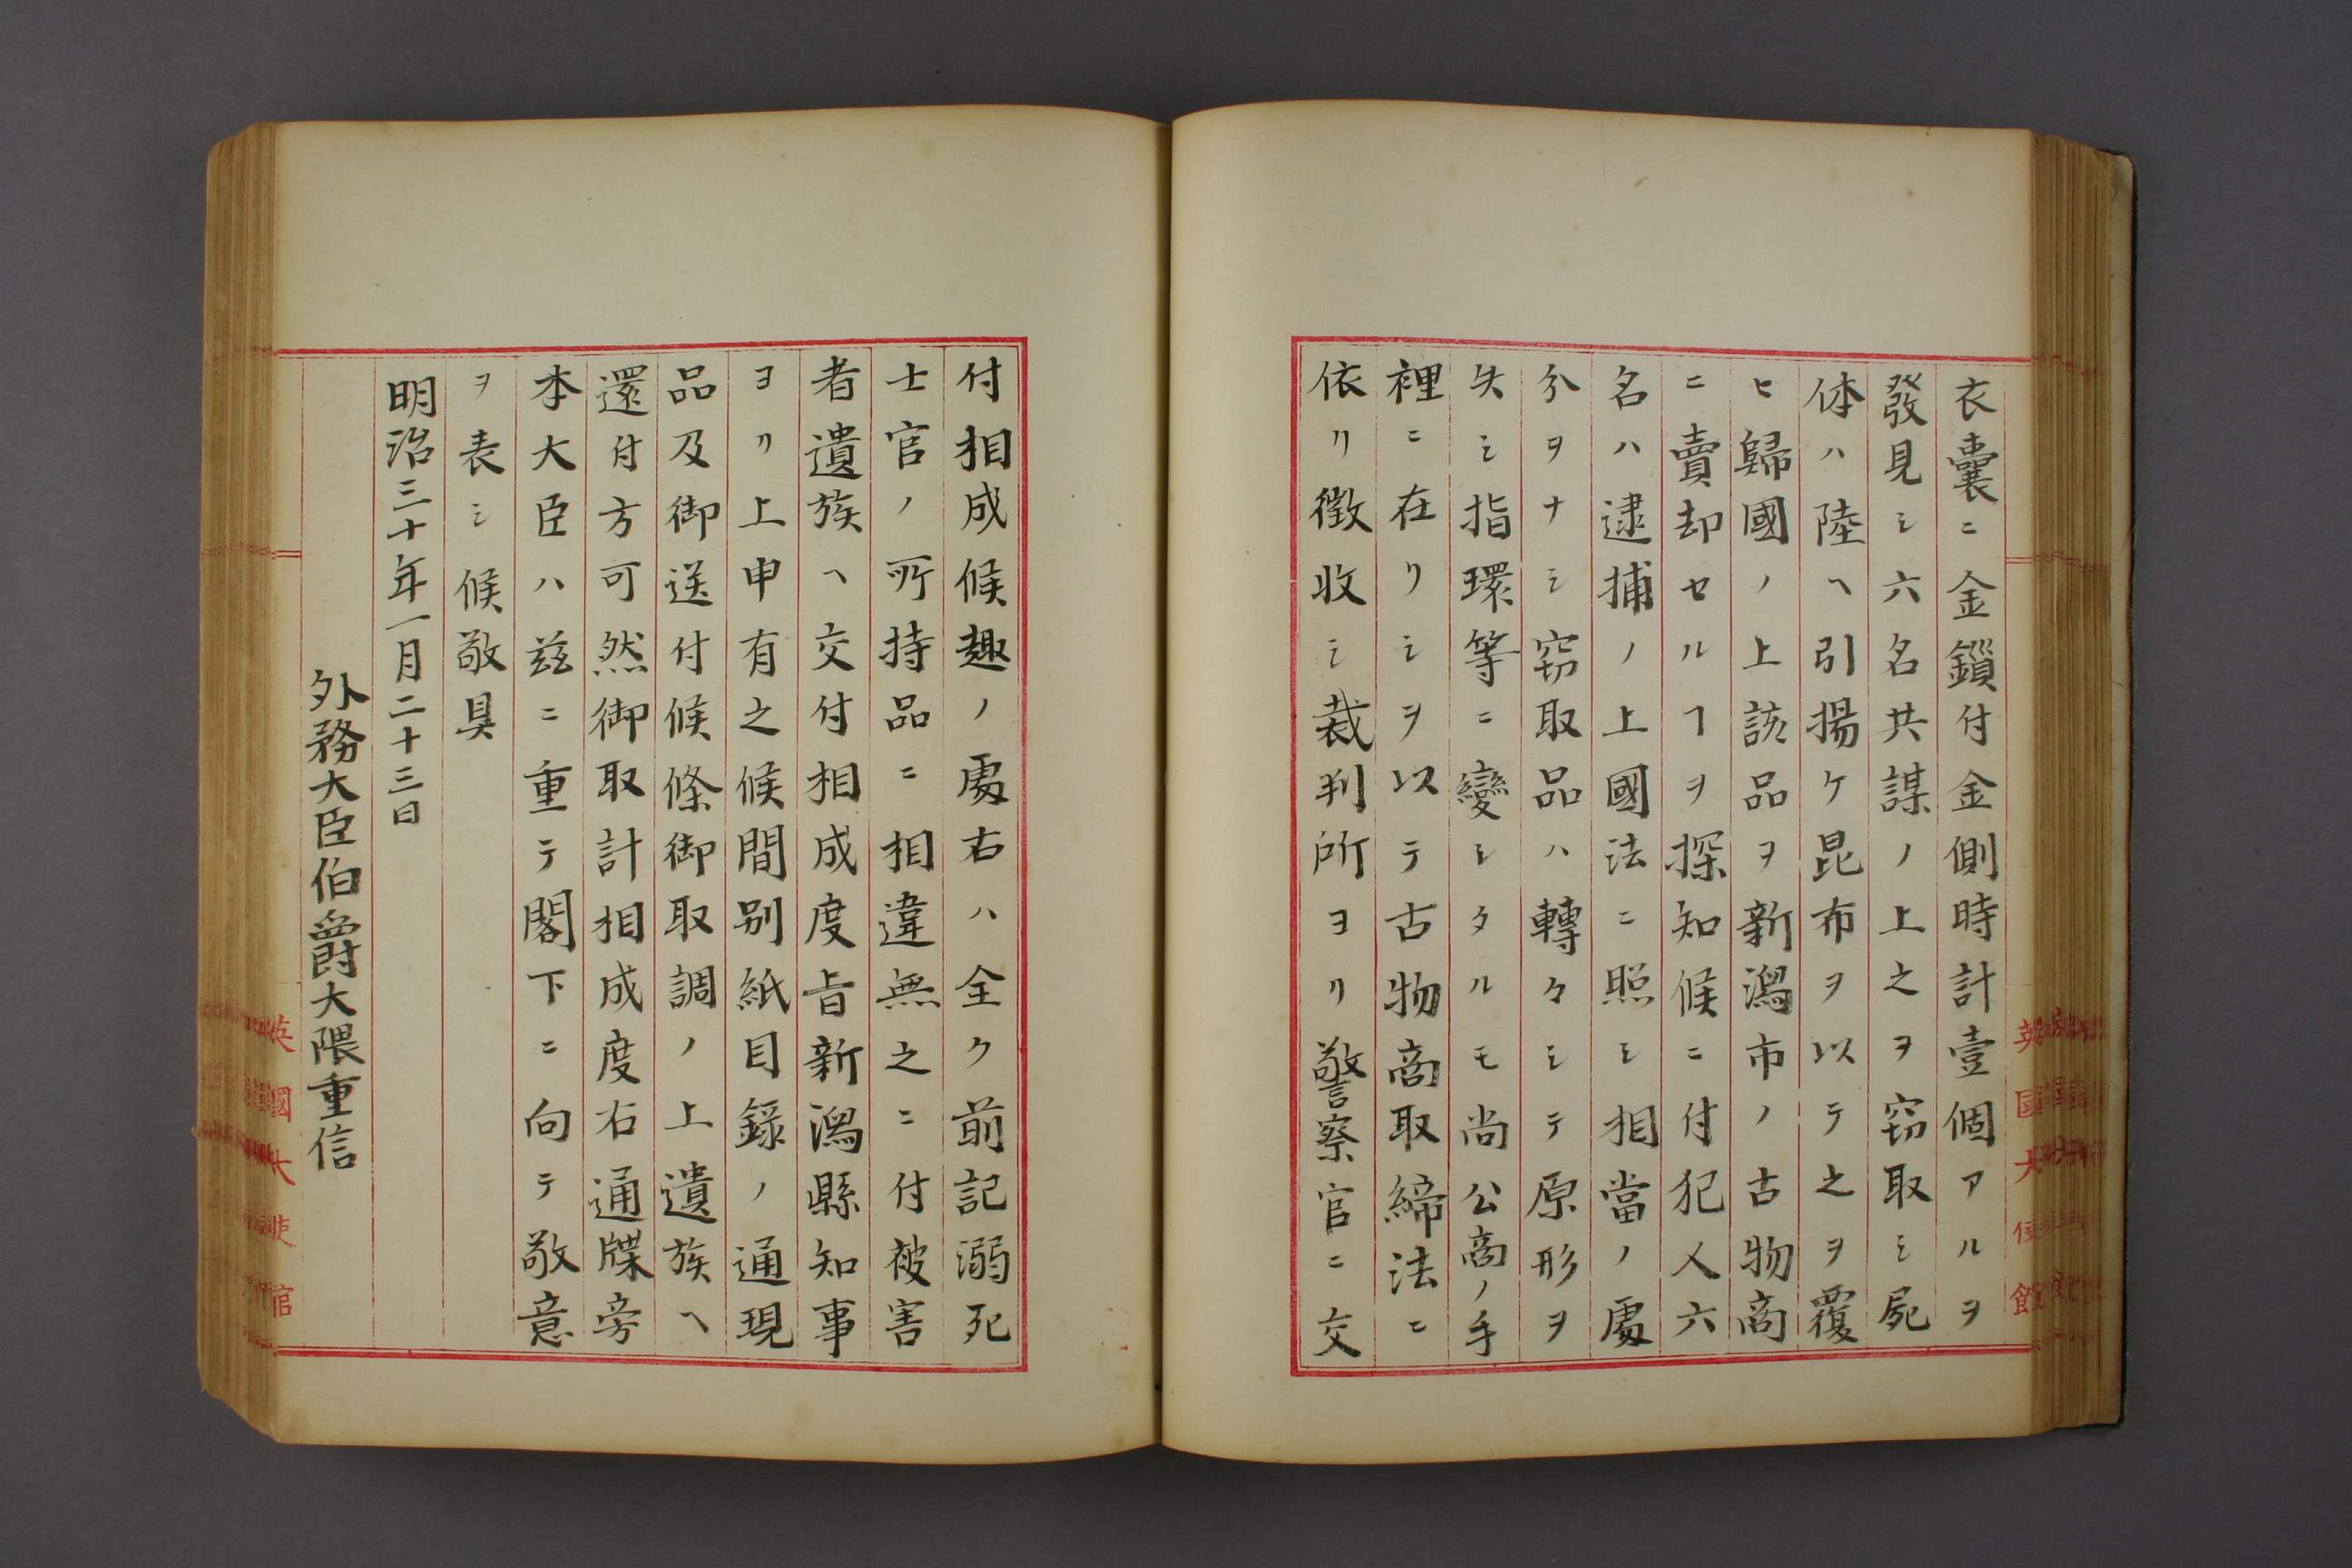 衣嚢ニ金鎖付金側時計壹個アルヲ
發見シ六名共謀ノ上之ヲ窃取シ屍
体ハ陸ヘ引揚ケ昆布ヲ以テ之ヲ覆
ヒ歸國ノ上該品ヲ新潟市ノ古物商
ニ賣却セルヿヲ探知候ニ付犯人六
名ハ逮捕ノ上國法ニ照シ相當ノ處
分ヲナシ窃取品ハ轉々シテ原形ヲ
失シ指環等ニ變シタルモ尚公商ノ手
裡ニ在リシヲ以テ古物商取締法ニ
依リ徴收シ裁判所ヨリ警察官ニ交
付相成候趣ノ處右ハ全ク前記溺死
士官ノ所持品ニ相違無之ニ付被害
者遺族ヘ交付相成度旨新潟縣知事
ヨリ上申有之候間別紙目録ノ通現
品及御送付候條御取調ノ上遺族ヘ
還付方可然御取計相成度右通牒旁
本大臣ハ玆ニ重テ閣下ニ向テ敬意
ヲ表シ候敬具
明治三十年一月二十三日
外務大臣伯爵大隈重信
英國大使館